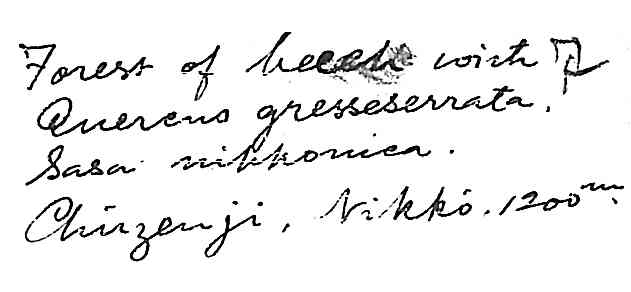 Forest of beech with
Quercus gresseserrata.
Sasa nikkonica.
Chūzenji, Nikkō. 1200m.